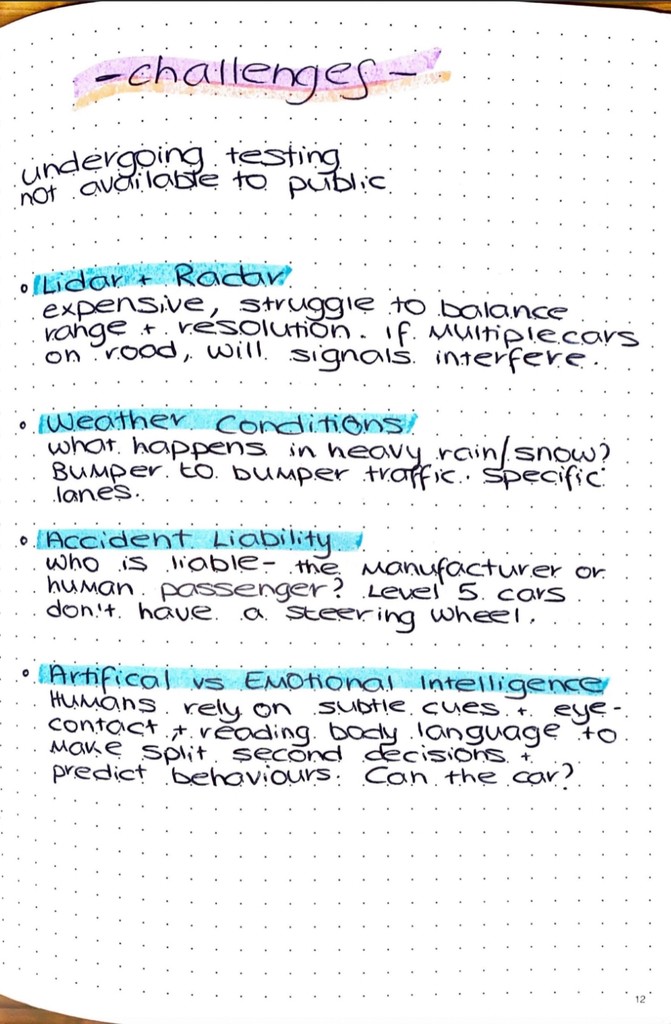 -challenges-
undergoing testing
not available to public
Lidar + Radar
expensive, struggle to balance
range + resolution. If multiple cars
on road, will signals interfere.
Weather Conditions
what happens in heavy rain/snow?
Bumper to bumper traffic. Specific
lanes.
Accident Liability
who is liable- the manufacturer or
human passenger? Level 5 cars
don't have a steering wheel.
Artifical vs Emotional Intelligence
Humans rely on subtle cues + eye-
contact + reading body language to
make split second decisions +
predict behaviours. Can the car?
12